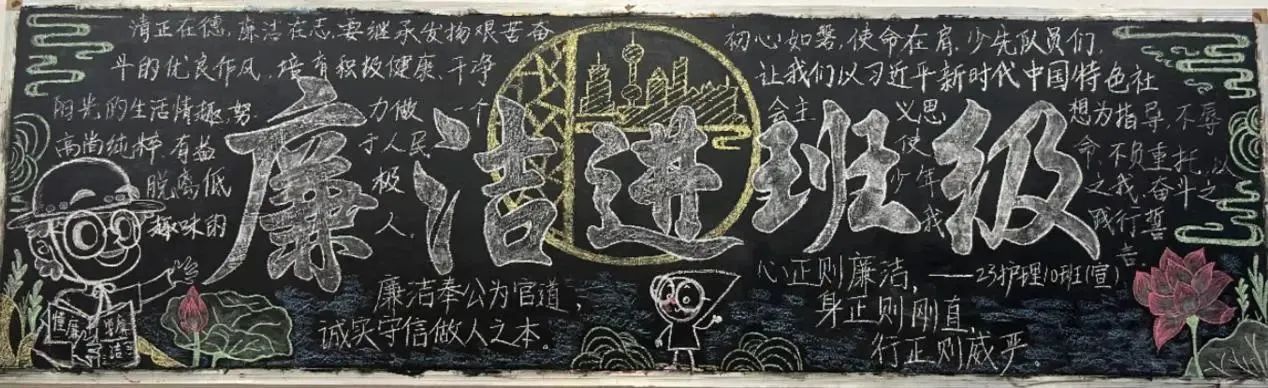 清正在德,廉洁在志,要继承发扬艰苦奋
斗的优良作风,培育积极健康、干净
阳光的生活情趣,努力做一个
高尚纯粹、有益于人民
脱离低极
趣味的人。
廉洁进班级
初心如磐,使命在肩,少先队员们,
让我们以习近平新时代中国特色社
会主义思想为指导,不辱
使命、不负重托,以
少年之我,奋斗之
我,践行誓
言
廉洁奉公为官道,
诚实守信做人之本。
心正则廉洁,
——23护理10班(宣)
身正则刚直,
行正则威严。
懂廉
洁